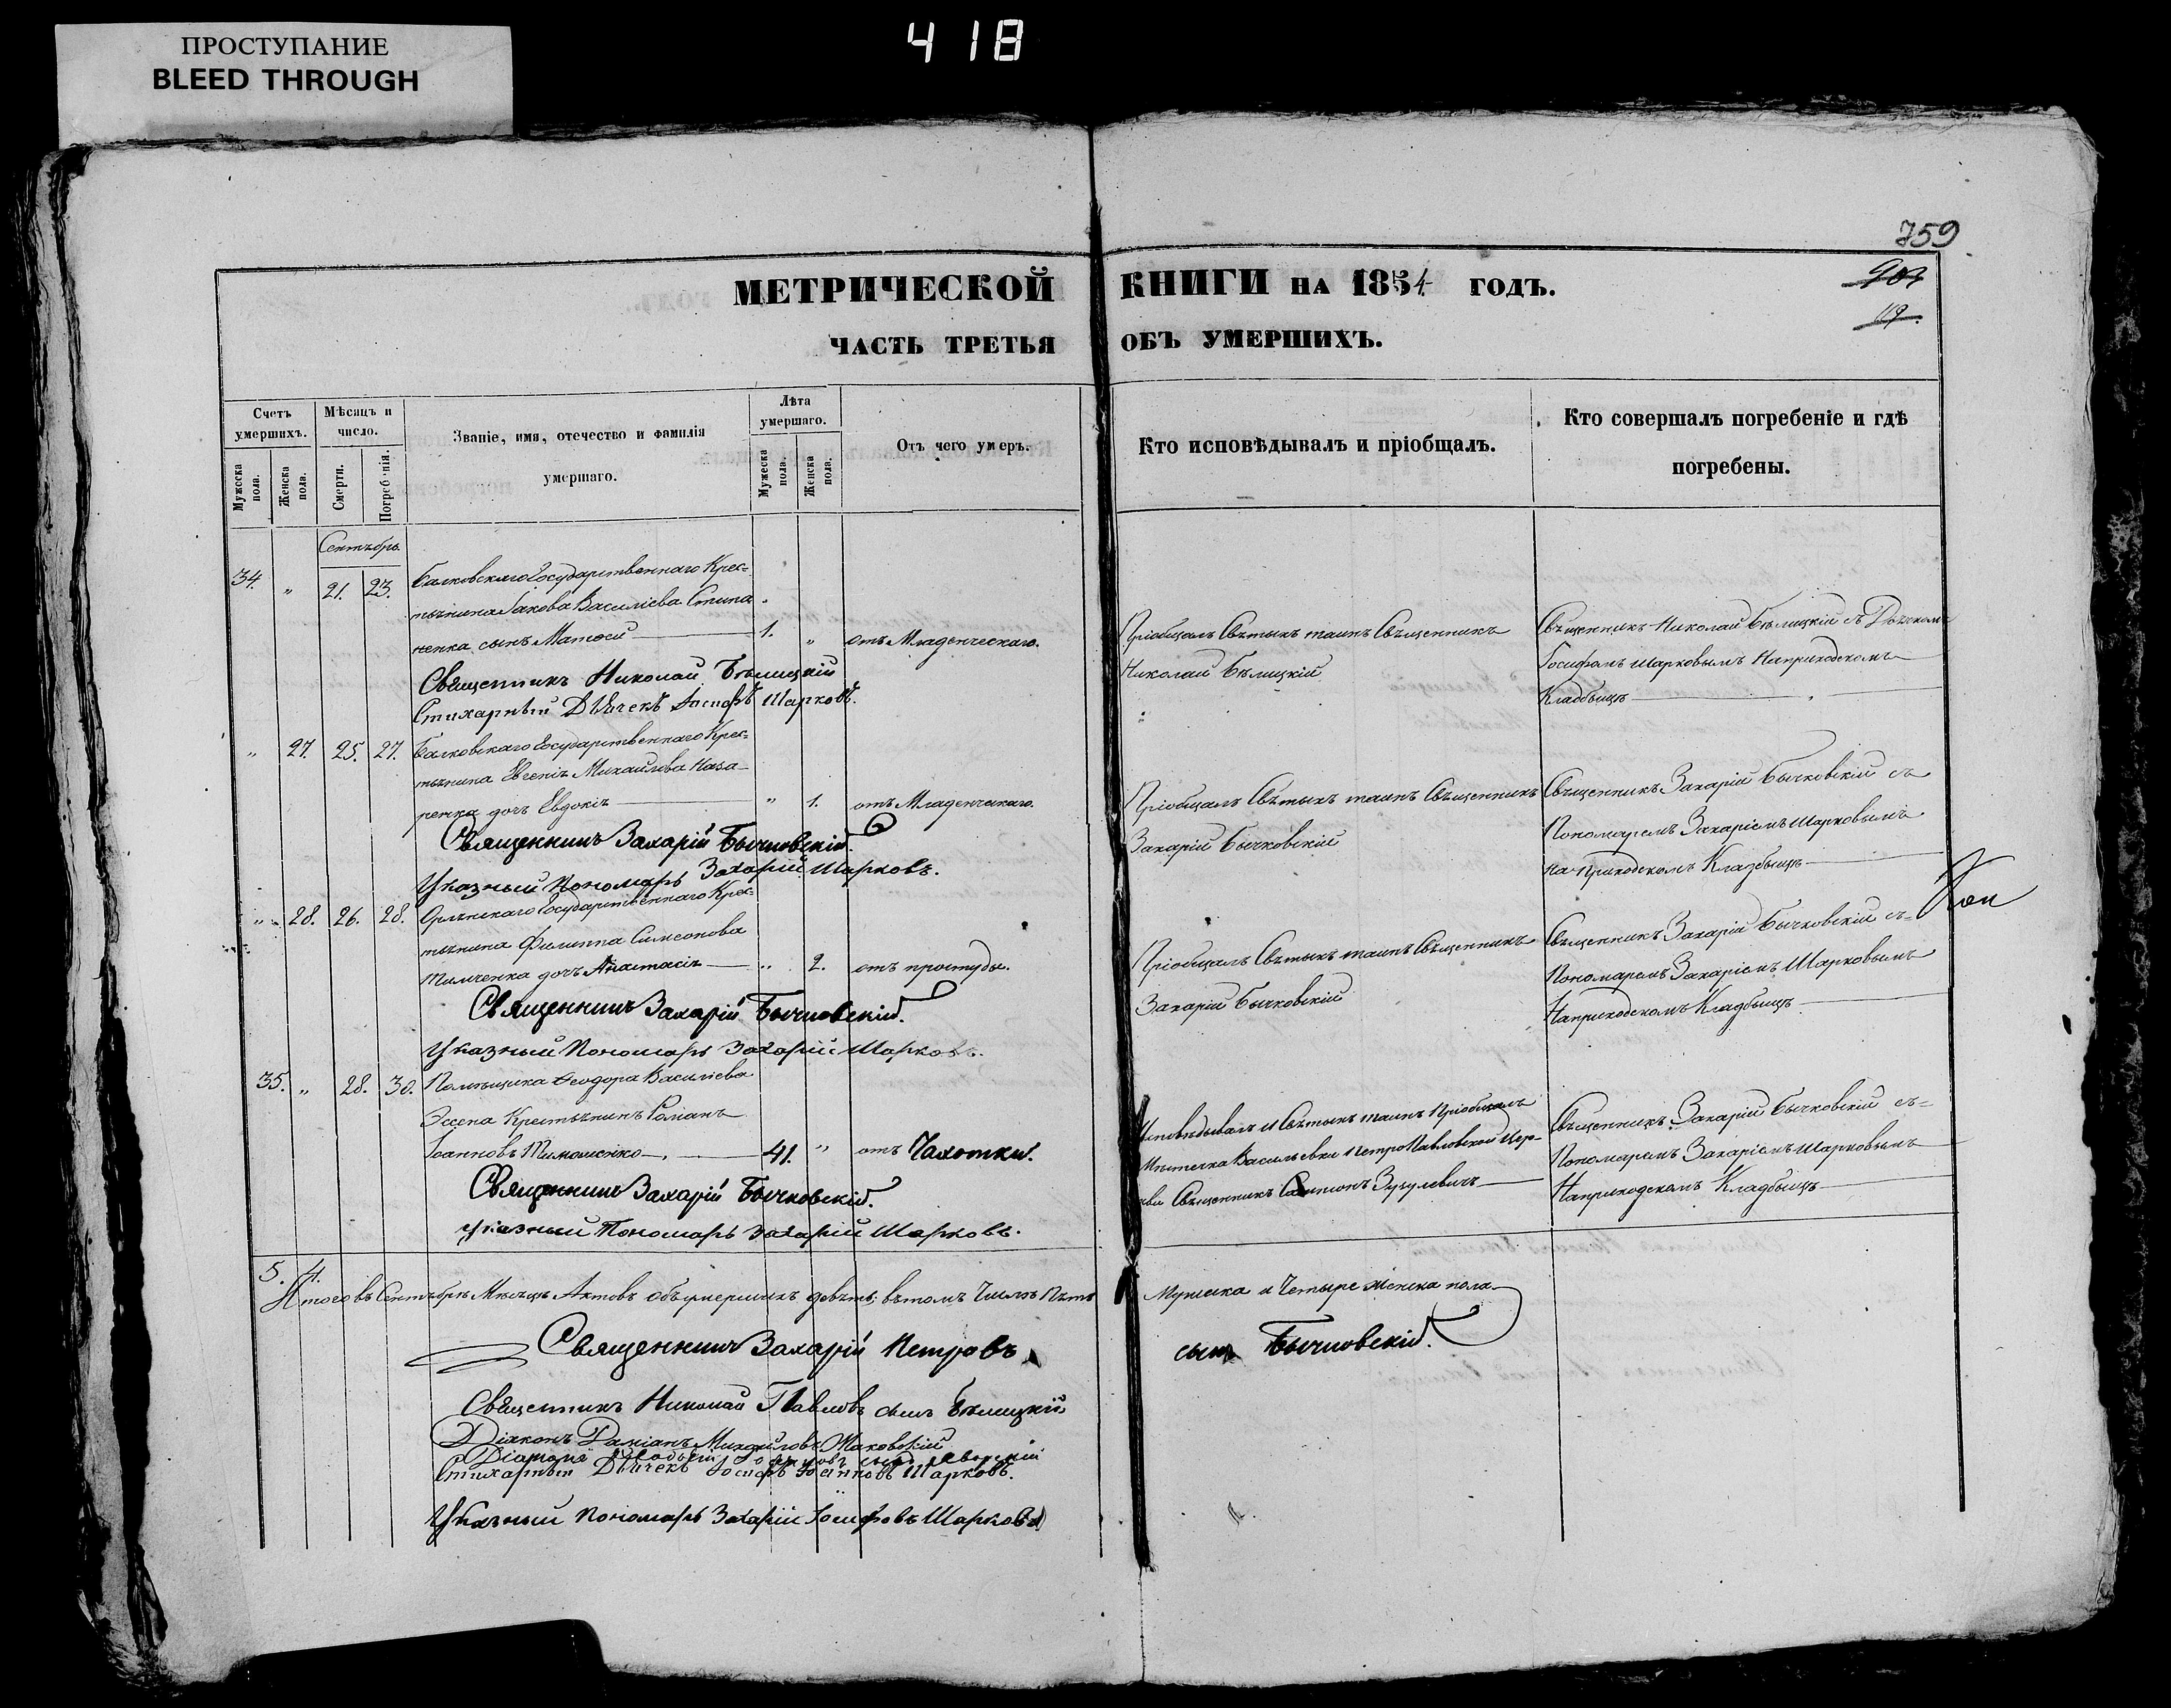 ПРОСТУПАНИЕ
BLEED THROUGH
418
759
903
119.
МЕТРИЧЕСКОЙ КНИГИ НА 1854 ГОДЪ.
ЧАСТЬ ТРЕТЬЯ ОБЪ УМЕРШИХЪ.
Счетъ умершихъ.
Мужеска пола.
Женска пола.
Мѣсяцъ и число.
Смерти.
Погребенія.
Званіе, имя, отечество и фамилія умершаго.
Лѣта умершаго.
Мужеска пола.
Женска пола.
Отъ чего умеръ.
Кто исповѣдывалъ и пріобщалъ.
Кто совершалъ погребеніе и гдѣ погребены.
Сентябрь
34. „ 21. 23. Балковскаго Государственнаго Крес=
тьянина Іакова Василіева
ненка сынъ Матѳей 1. „ отъ Младенческаго.
Пріобщалъ Святыхъ таинъ Священникъ
Николай Бѣлицкій
Священникъ Николай Бѣлицкій съ Дьячкомъ
Іосифомъ Шарковымъ На приходскомъ
Кладбищѣ
Священникъ Николай Бѣлицкій
Стихарный Дьячекъ Іосифъ Шарковъ.
„ 27. 25. 27. Балковскаго Государственнаго Крес=
тьянина Евгенія Михайлова Каза-
ренка дочь Евдокія „ 1. отъ Младенческаго.
Пріобщалъ Святыхъ таинъ Священникъ
Захарій Бычковскій
Священникъ Захарій Бычковскій съ
Пономаремъ Захаріемъ Шарковымъ
на приходскомъ Кладбищѣ
Священникъ Захарій Бычковскій.
Указный Пономарь Захарій Шарковъ.
„ 28. 26. 28. Государственнаго Крес=
тьянина Филиппа Симеонова
Тимченка дочь Анастасія „ 2. отъ простуды.
Пріобщалъ Святыхъ таинъ Священникъ
Захарій Бычковскій
Священникъ Захарій Бычковскій съ=
Пономаремъ Захаріемъ Шарковымъ
На приходскомъ Кладбищѣ
Священникъ Захарій Бычковскій.
Указный Пономарь Захарій Шарковъ.
35. „ 28. 30. Помѣщика Ѳеодора Василіева
Эссена Крестьянинъ Романъ
Іоанновъ Тимошенко 41. „ отъ Чахотки.
Исповѣдывалъ и Святыхъ таинъ Пріобщалъ
Мѣстечка Васильевки Петро Павловской Цер-
кви Священникъ Зузулевичъ
Священникъ Захарій Бычковскій съ=
Пономаремъ Захаріемъ Шарковымъ
На приходскомъ Кладбищѣ
Священникъ Захарій Бычковскій.
Указный Пономарь Захарій Шарковъ.
5. 4.
Итого въ Сентябрѣ Мѣсяцѣ Актовъ объ умершихъ девять, въ томъ Числѣ Пять Мужеска и Четыре Женска пола
Священникъ Захарій Петровъ сынъ Бычковскій.
Священникъ Николай Павловъ сынъ Бѣлицкій
Діаконъ Даміанъ Михайловъ Маковскій
Стихарный Дьячекъ Іосифъ Іоанновъ Шарковъ.
Указный Пономарь Захарій Іосифовъ Шарковъ